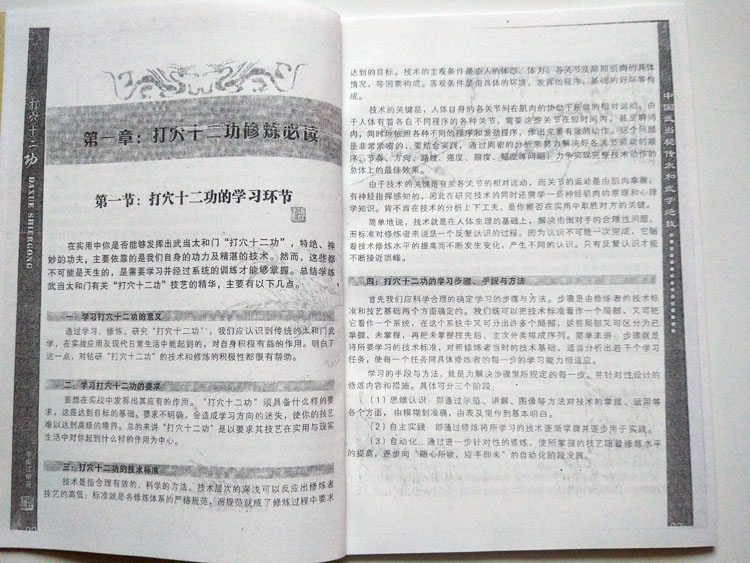 打穴十二功
DAXUE SHIERGONG
第一章：打穴十二功修炼必读
第一节：打穴十二功的学习环节
在实用中你是否能够发挥出武当太和门“打穴十二功”，特绝、神
妙的功夫，主要依靠的是我们自身的功力及精湛的技术。然而，这些都
不可能是天生的，是需要学习并经过系统的训炼才能够掌握。总结学练
武当太和门有关“打穴十二功”技艺的精华，主要有以下几点。
一：学习打穴十二功的意义
通过学习、修炼、研究“打穴十二功”，我们应认识到传统的太和门武
学，在实战应用及现代日常生活中能起到的，对自身积极有益的作用。明白了
这一点，对钻研“打穴十二功”的技术和修炼的积极性都很有帮助。
二：学习打穴十二功的要求
要想在实战中发挥出其应有的作用。“打穴十二功”须具备什么样的要
求，这是达到目的的基础。要求不明确，会造成学习方向的迷失，使你的技艺
难以达到高级的境界。总的来讲“打穴十二功”是以要求其技艺在实用与现实
生活中对你起到什么样的作用为中心。
三：打穴十二功的技术标准
技术是指合理有效的、科学的方法。技术层次的深浅可以反应出修炼者
技艺的高低；标准就是各修炼体系的严格规范，而规范就成了修炼过程中要求
达到的目标。技术的主观条件是由人的体态、体力、各关节及局部肌肉的具体
情况，等因素构成。客观条件是由具体的环境、发挥的程序、基础的好坏等构
成。
技术的关键是，人体自身的各关节间在肌肉的协助下所做的相对运动。由
于人体有着各自不同程序的各种关节，需要这些关节在短时间内，甚至瞬间
内，同时地依照各种不同的程序和发动程序，作出完善有效的动作。这个问题
是非常紧密的，要结合实践，通过周密的分析来努力解决好各关节运动的顺
序、节奏、方向、路线、强度、限度、幅度等问题，力争实现完整技术动作的
总体上的最佳效果。
由于技术的关键是有关各关节的相对运动，而关节的运动是由肌肉掌握，
有神经指挥感知的，因此在研究技术的同时还需学一些神经肌肉的原理和心理
学知识。肯不肯在技术的分析上下工夫，是你能否在实用中取胜对方的关键。
简单地说，技术就是在人体生理的基础上，解决击倒对手的合理性问题。
而标准对修炼者来说是一个反复认识的过程。因为认识不可能一次完成，它随
着技术修炼水平的提高而不断发生变化，产生不同的认识。只有反复认识才能
不断接近顶峰。
四：打穴十二功的学习步骤、手段与方法
首先我们应科学合理的确定学习的步骤与方法。步骤是由修炼者的技术标
准和技艺基础两个方面确定的。我们既可以把技术标准看作一个局部，又可把
它看作一个系统，在这个系统中又可分出许多个局部，这些局部又可区分为已
掌握、未掌握，再把未掌握按先后、主次分类排成序列。简单来讲，步骤就是
将所要学习的技术标准，对照修炼者当时的技术基础，适当分析出若干个学习
任务，使每一个任务同具体修炼者的每一步的学习能力相适应。
学习的手段与方法，就是为解决步骤里所规定的每一步，并针对性设计的
修炼内容和措施。具体可分三个阶段。
(1) 思维认识，即通过示范、讲解、图像等方法对技术的掌握、运用等
各个方面，由模糊到准确，由表及里作到基本明白。
(2) 自主实践，即通过修炼将所学习的技术逐渐掌握并逐步用于实践。
(3) 自动化，通过进一步针对性的修炼，使所掌握的技艺随着修炼水平
的提高，逐步向“随心所欲，应手即来”的自动化阶段发展。
中国武当秘传太和武学绝技